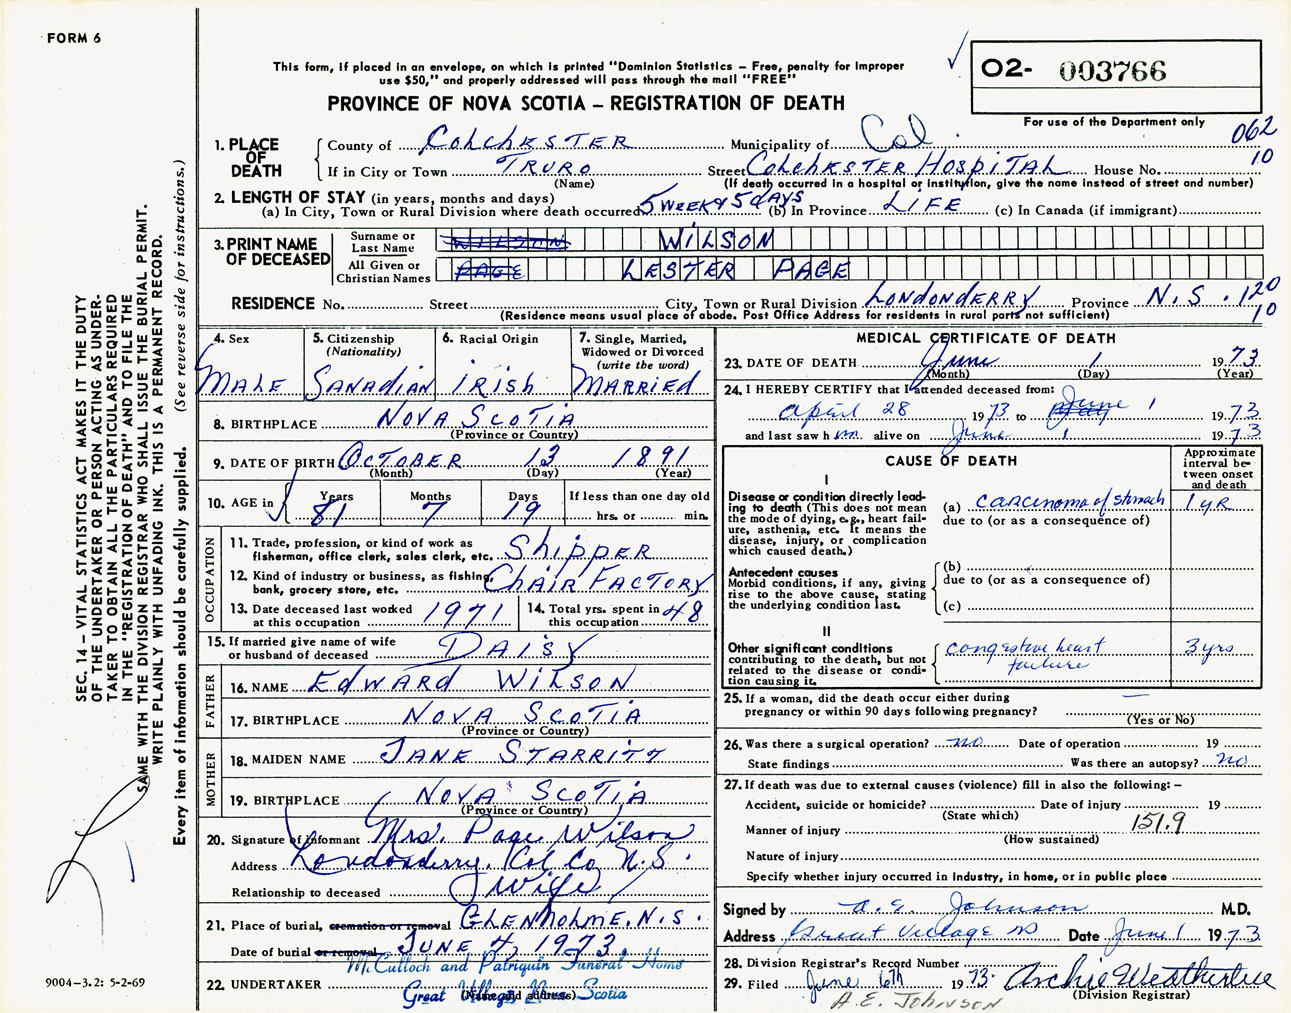 FORM 6
This form, if placed in an envelope, on which is printed "Dominion Statistics – Free, penalty for improper
use $50," and properly addressed will pass through the mail "FREE"
PROVINCE OF NOVA SCOTIA – REGISTRATION OF DEATH
O2- 003766
For use of the Department only
062
10
1. PLACE OF DEATH
County of COLCHESTER Municipality of Col.
If in City or Town TRURO Street COLCHESTER HOSPITAL House No.
(Name) (If death occurred in a hospital or institution, give the name instead of street and number)
2. LENGTH OF STAY (in years, months and days)
(a) In City, Town or Rural Division where death occurred 5 WEEKS 5 DAYS (b) In Province LIFE (c) In Canada (if immigrant)
3. PRINT NAME OF DECEASED
Surname or Last Name WILSON WILSON
All Given or Christian Names PAGE LESTER PAGE
RESIDENCE No. Street City, Town or Rural Division LONDONDERRY Province N.S. 120
(Residence means usual place of abode. Post Office Address for residents in rural parts not sufficient) 10
4. Sex MALE
5. Citizenship (Nationality) CANADIAN
6. Racial Origin IRISH
7. Single, Married, Widowed or Divorced (write the word) MARRIED
8. BIRTHPLACE NOVA SCOTIA
(Province or Country)
9. DATE OF BIRTH OCTOBER 13 1891
(Month) (Day) (Year)
10. AGE in Years 81 Months 7 Days 19 If less than one day old
hrs. or min.
OCCUPATION
11. Trade, profession, or kind of work as
fisherman, office clerk, sales clerk, etc. SHIPPER
12. Kind of industry or business, as fishing,
bank, grocery store, etc. CHAIR FACTORY
13. Date deceased last worked
at this occupation 1971
14. Total yrs. spent in
this occupation 48
15. If married give name of wife
or husband of deceased DAISY
FATHER
16. NAME EDWARD WILSON
17. BIRTHPLACE NOVA SCOTIA
(Province or Country)
MOTHER
18. MAIDEN NAME JANE STARRITT
19. BIRTHPLACE NOVA SCOTIA
(Province or Country)
20. Signature of informant Mrs. Page Wilson
Address Londonderry, Col. Co. N.S.
Relationship to deceased Wife
21. Place of burial, cremation or removal GLENHOLME, N.S.
Date of burial or removal JUNE 4, 1973
McCulloch and Patriquin Funeral Home
22. UNDERTAKER Great Village Nova Scotia
(Name and address)
MEDICAL CERTIFICATE OF DEATH
23. DATE OF DEATH June 1 1973
(Month) (Day) (Year)
24. I HEREBY CERTIFY that I attended deceased from:
April 28 1973 to May June 1 1973
and last saw h im alive on June 1 1973
CAUSE OF DEATH
Approximate interval between onset and death
I
Disease or condition directly lead-
ing to death (This does not mean
the mode of dying, e.g., heart fail-
ure, asthenia, etc. It means the
disease, injury, or complication
which caused death.)
(a) carcinoma of stomach 1 yR
due to (or as a consequence of)
Antecedent causes
Morbid conditions, if any, giving
rise to the above cause, stating
the underlying condition last.
(b)
due to (or as a consequence of)
(c)
II
Other significant conditions
contributing to the death, but not
related to the disease or condi-
tion causing it.
congestive heart failure 3 yrs
25. If a woman, did the death occur either during
pregnancy or within 90 days following pregnancy? —
(Yes or No)
26. Was there a surgical operation? no Date of operation 19
State findings Was there an autopsy? no
27. If death was due to external causes (violence) fill in also the following: –
Accident, suicide or homicide? Date of injury 19
(State which)
Manner of injury 151.9
(How sustained)
Nature of injury
Specify whether injury occurred in industry, in home, or in public place
Signed by A. E. Johnson M.D.
Address Great Village NS Date June 1 1973
28. Division Registrar's Record Number
29. Filed June 6th 1973 Archie Weatherbee
(Division Registrar)
A.E. JOHNSON
SEC. 14 – VITAL STATISTICS ACT MAKES IT THE DUTY
OF THE UNDERTAKER OR PERSON ACTING AS UNDER-
TAKER TO OBTAIN ALL THE PARTICULARS REQUIRED
IN THE "REGISTRATION OF DEATH" AND TO FILE THE
SAME WITH THE DIVISION REGISTRAR WHO SHALL ISSUE THE BURIAL PERMIT.
WRITE PLAINLY WITH UNFADING INK. THIS IS A PERMANENT RECORD.
Every item of information should be carefully supplied. (See reverse side for instructions.)
9004–3.2: 5-2-69